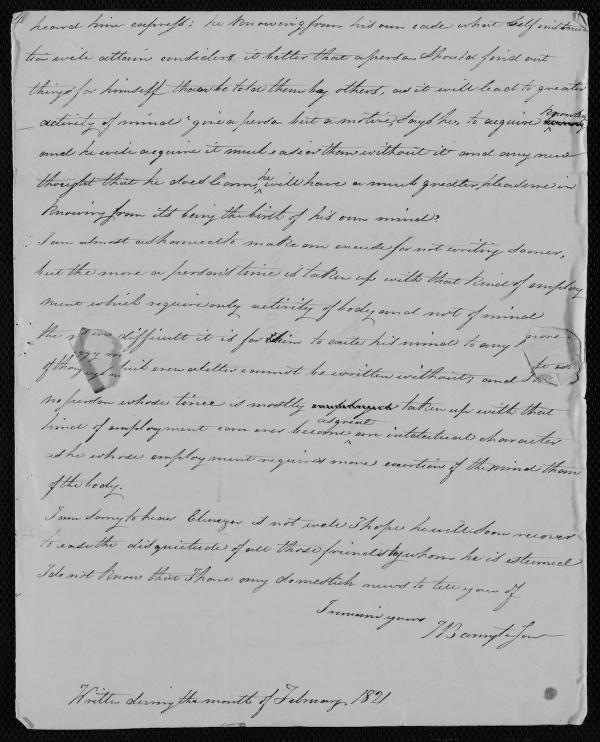 heard him express; he knowing from his own case what self instruc
tion will attain considers it better that a person should find out
things for himself than be told them by others, as it will lead to greater
activity of mind "give a person but a motive, says he, to acquire knowledge
and he will acquire it much easier than without it and any new
thought that he does learn he will have a much greater pleasure in
knowing from its being the birth of his own mind"
I am almost ashamed to make an excuse for not writing sooner,
but the more a person's time is taken up with that kind of employ
ment which require only activity of body and not of mind
the difficult it is for him to exite his mind to any
of though even a letter cannot be written without, and
no person whose time is mostly employed taken up with that
kind of employment can ever become as great an intelectual character
as he whose employment requires more exertion of the mind than
of the body.
I am sorry to hear Ebenezer is not well I hope he will soon recover
to ease the disquietude of all those friends by whom he is esteemed
I do not know that I have any domestick news to tell you of
I remain yours
Written during the month of February, 1821